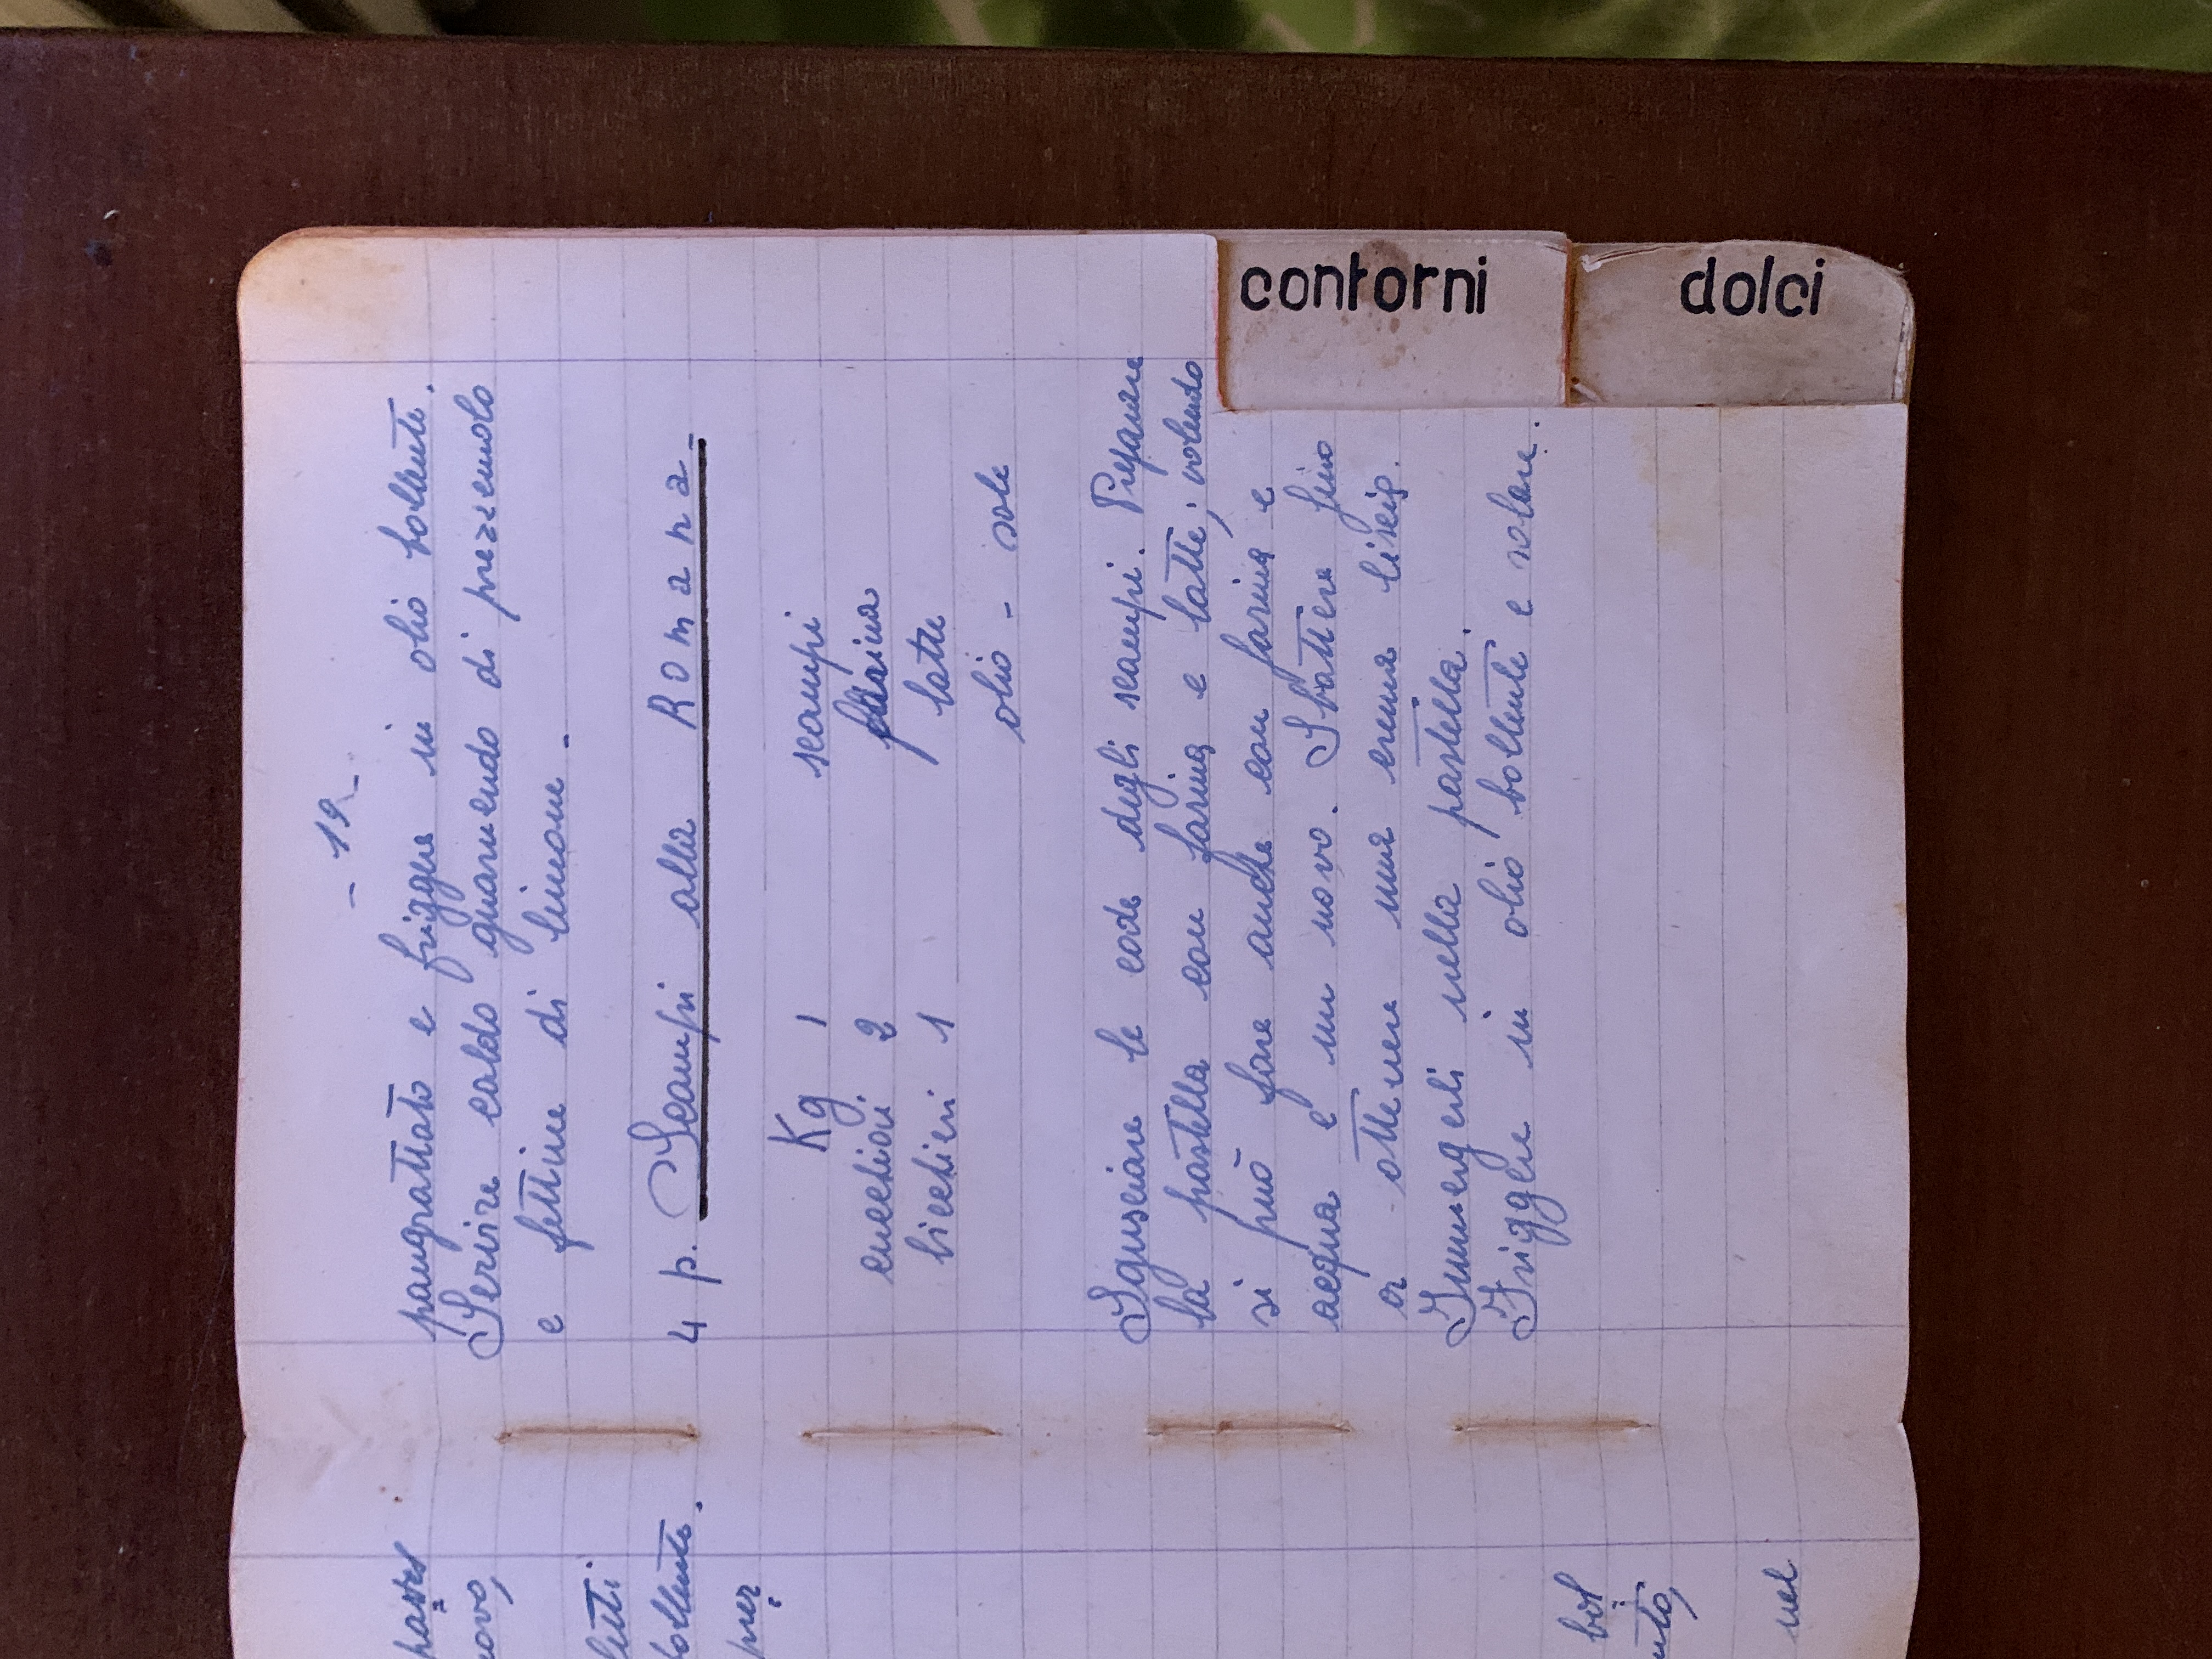 - 19 -
pangrattato e friggere in olio bollente.
Servire caldo guarnendo di prezzemolo
e fettine di limone -
4 p. Scampi alla Romana -
Kg 1 scampi
cucchiai 2 farina
bicchieri 1 latte
olio - sale
Sgusciare le code degli scampi. Preparare
la pastella con farina e latte; volendo
si può fare anche con farina e
acqua e un uovo. Sbattere fino
a ottenere una crema liscia.
Immergerli nella pastella.
Friggere in olio bollente e salare.
contorni
dolci
pastel
uovo,
letti
bollente.
prez
bol
nel